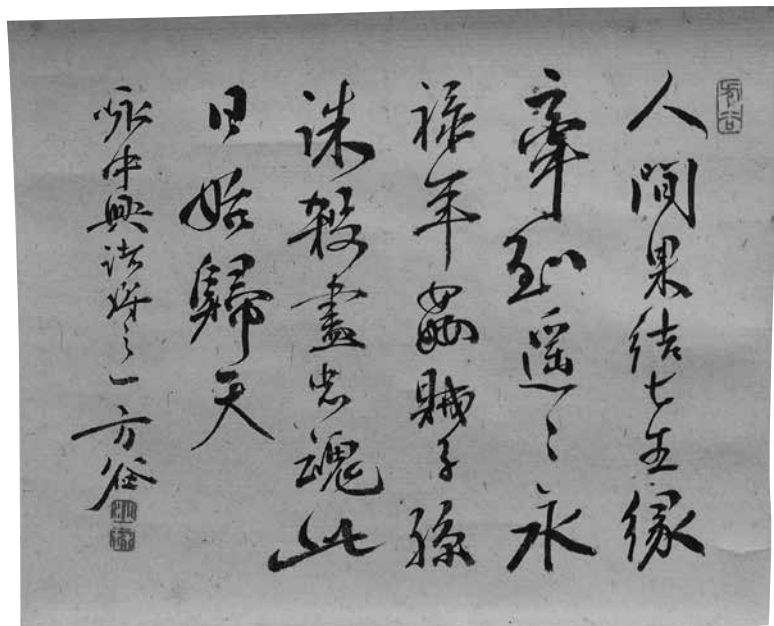 方谷
人間果結七生縁
牽到遥々永
禄年姦賊子孫
誅殺盡忠魂此
日始歸天
咏中興諸将之一 方谷